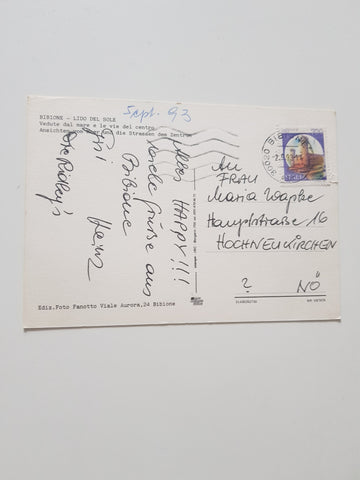 Sept. 93
BIBIONE - LIDO DEL SOLE
Vedute dal mare e le vie del centro
Ansichten vom Meer und die Strassen dem Zentrum
Alles HAPPY!!!
Viele Grüße aus
Bibione
Heinz
An
FRAU
Maria
Hauptstraße 16
HOCHNEUKIRCHEN
2 NÖ
30020 BIBIONE
Ediz.Foto Fanotto Viale Aurora,24 Bibione